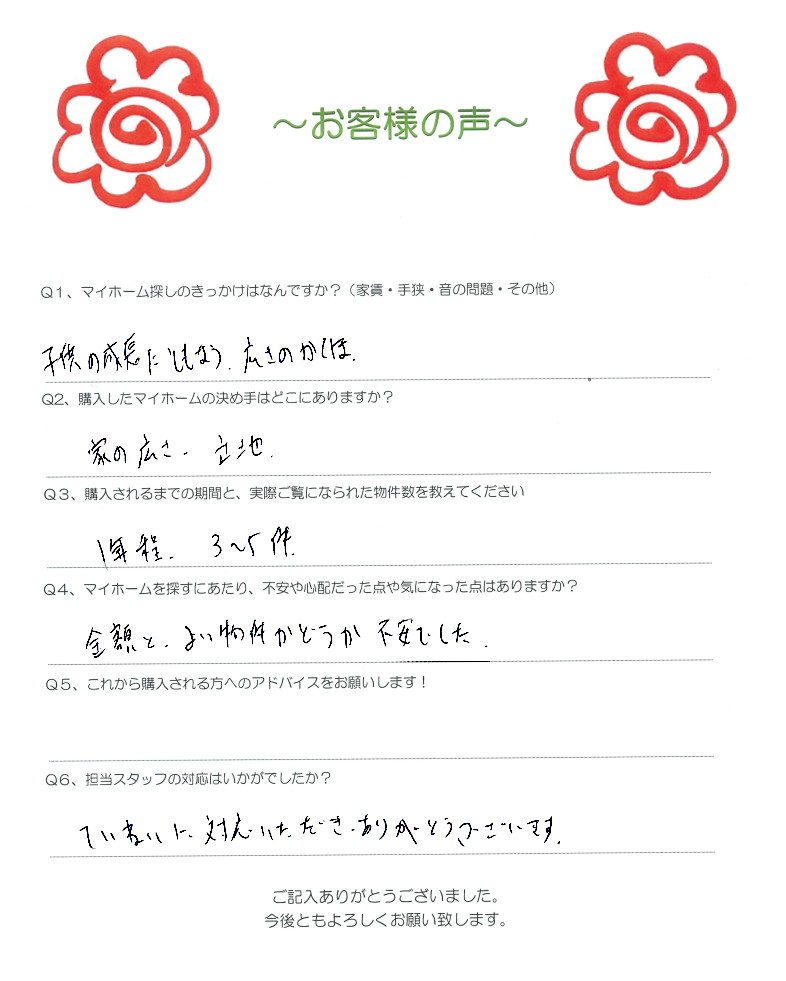 ～お客様の声～
Q1、マイホーム探しのきっかけはなんですか？（家賃・手狭・音の問題・その他）
子供の成長にともなう、広さのかくほ。
Q2、購入したマイホームの決め手はどこにありますか？
家の広さ、立地。
Q3、購入されるまでの期間と、実際ご覧になられた物件数を教えてください
1年程。3～5件。
Q4、マイホームを探すにあたり、不安や心配だった点や気になった点はありますか？
金額と、よい物件かどうか不安でした。
Q5、これから購入される方へのアドバイスをお願いします！
Q6、担当スタッフの対応はいかがでしたか？
ていねいに、対応いただき、ありがとうございます。
ご記入ありがとうございました。
今後ともよろしくお願い致します。